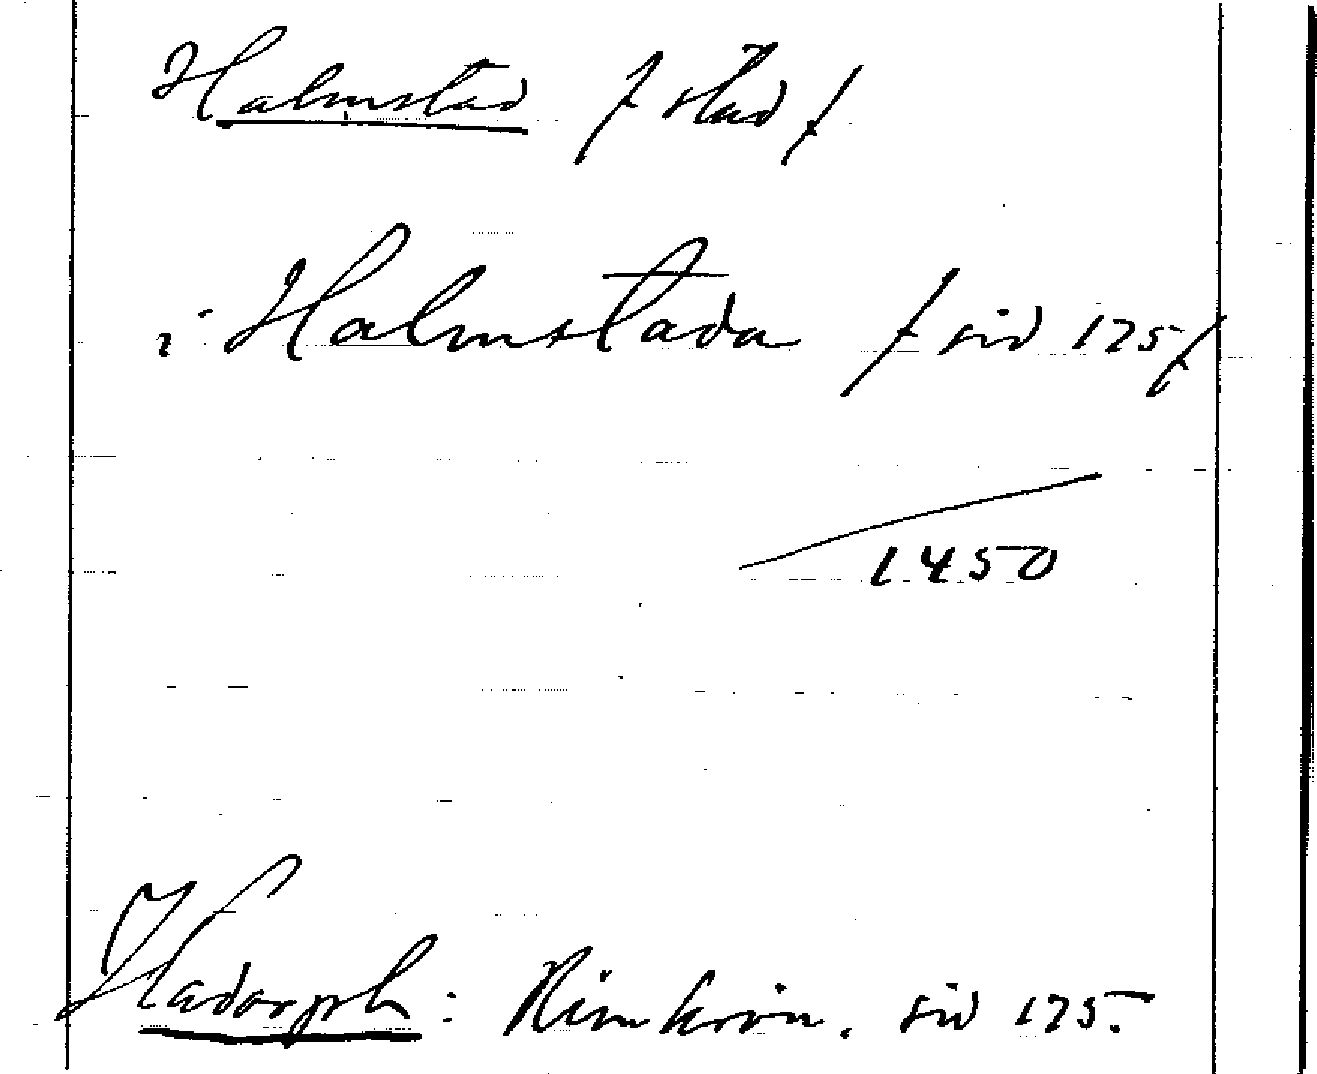 Halmstad / stad /
i Halmstada / sid 175 /
1450
Hadorph: Rimkrön. sid 175.